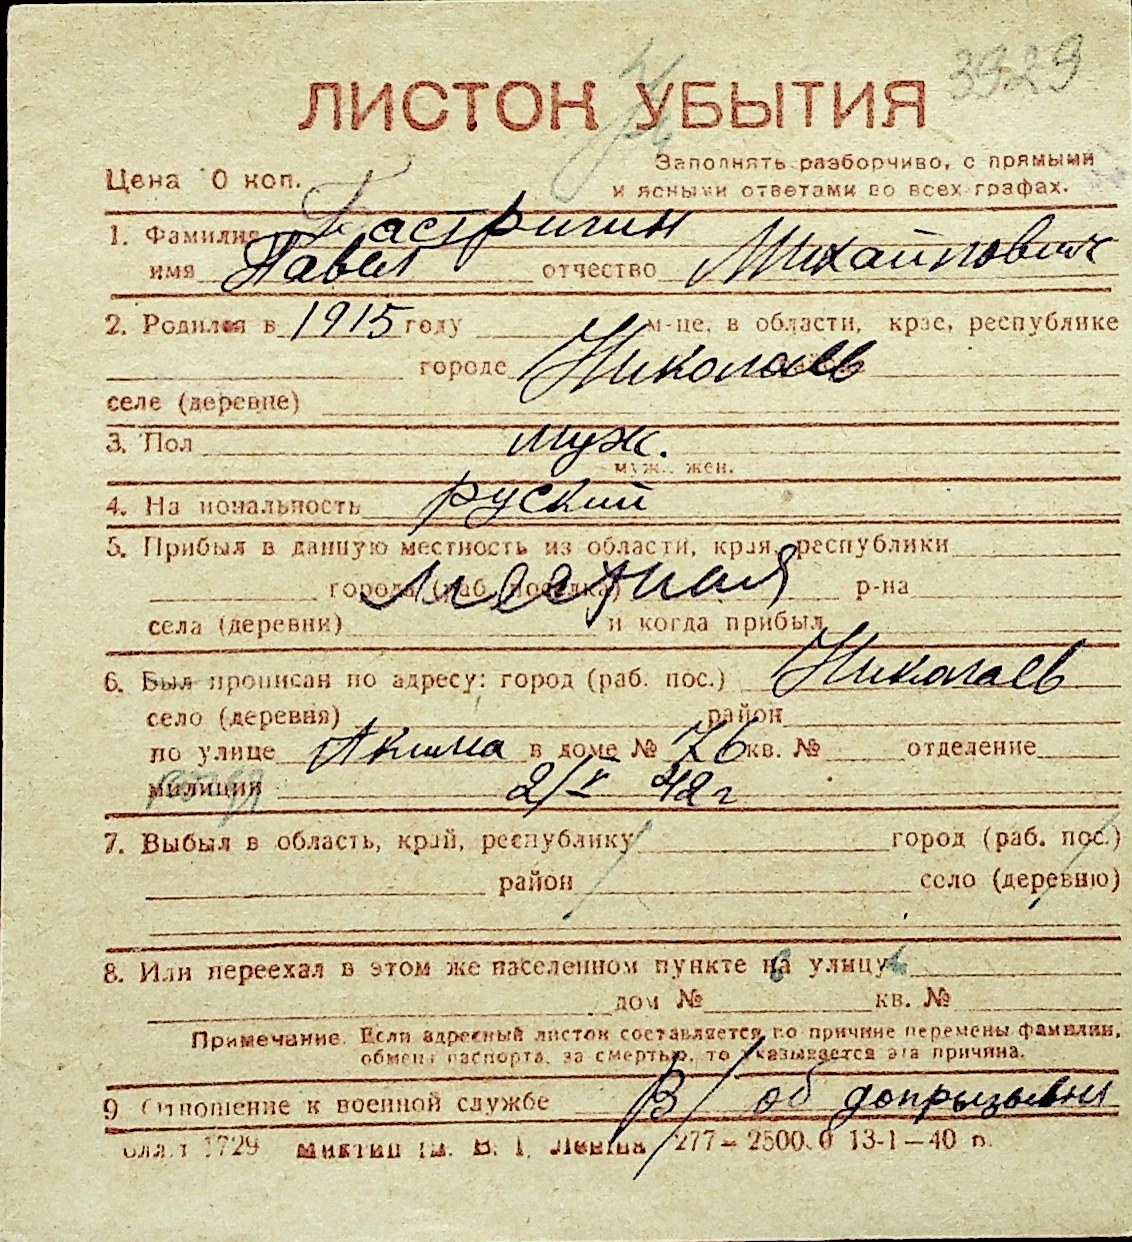 3929
ЛИСТОК УБЫТИЯ
Заполнять разборчиво, с прямыми
Цена 0 коп.
и ясными ответами во всех графах.
1. Фамилия Бастригин
имя Павел отчество Михайлович
2. Родился в 1915 году м-це, в области, крае, республике
городе Николаев
селе (деревне)
3. Пол муж.
муж., жен.
4. На иональность руский
5. Прибыл в данную местность из области, края, республики
города (раб. поселка) местная р-на
села (деревни) и когда прибыл
6. Был прописан по адресу: город (раб. пос.) Николаев
село (деревня) район
по улице Акима в доме № 76 кв. № отделение
милиции 2/V 42 г
7. Выбыл в область, край, республику город (раб. пос.)
район село (деревню)
8. Или переехал в этом же населенном пункте на улицу
дом № кв. №
Примечание. Если адресный листок составляется по причине перемены фамилии,
обмена паспорта, за смертью, то указывается эта причина.
9 Отношение к военной службе В/об допризывн
1729 им. В. І. Леніна 277–2500.0 13-1–40 п.